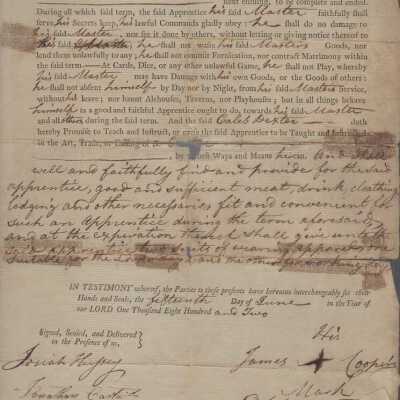 next ensuing, to be complete and ended.
During all which said term, the said Apprentice his said Master faithfully shall
serve, his Secrets keep, his lawful Commands gladly obey: he shall do no damage to
his said Master nor see it done by others, without letting or giving notice thereof to
his said Master, he shall not waste his said Masters Goods, nor
lend them unlawfully to any; he shall not commit Fornication, nor contract Matrimony within
the said term. At Cards, Dice, or any other unlawful Game, he shall not Play, whereby
his said Master may have Damage with his own Goods, or the Goods of others:
he shall not absent himself by Day nor by Night, from his said Masters Service,
without his leave; nor haunt Alehouses, Taverns, or Playhouses; but in all things behave
himself as a good and faithful Apprentice ought to do, towards his said Master
and during the said term. And the said Caleb Dexter doth
hereby Promise to Teach and Instruct, or cause the said Apprentice to be Taught and Instructed
in the Art, Trade, or Calling of a
by Ways and Means he can. And shall
well and faithfully find and provide for the said
apprentice, good and sufficient meat, drink, clothing
lodging and other necessaries fit and convenient for
such an Apprentice during the term aforesaid,
and at the expiration thereof shall give unto the
said apprentice two suits of wearing apparel, one
suitable for the Lords days and the other for working days
IN TESTIMONY whereof, the Parties to these presents have hereunto interchangeably set their
Hands and Seals, the fifteenth Day of June in the Year of
our LORD One Thousand Eight Hundred and Two
Signed, Sealed, and Delivered
in the Presence of us,
His
James + Cooper
Mark
Josiah
Jonathan